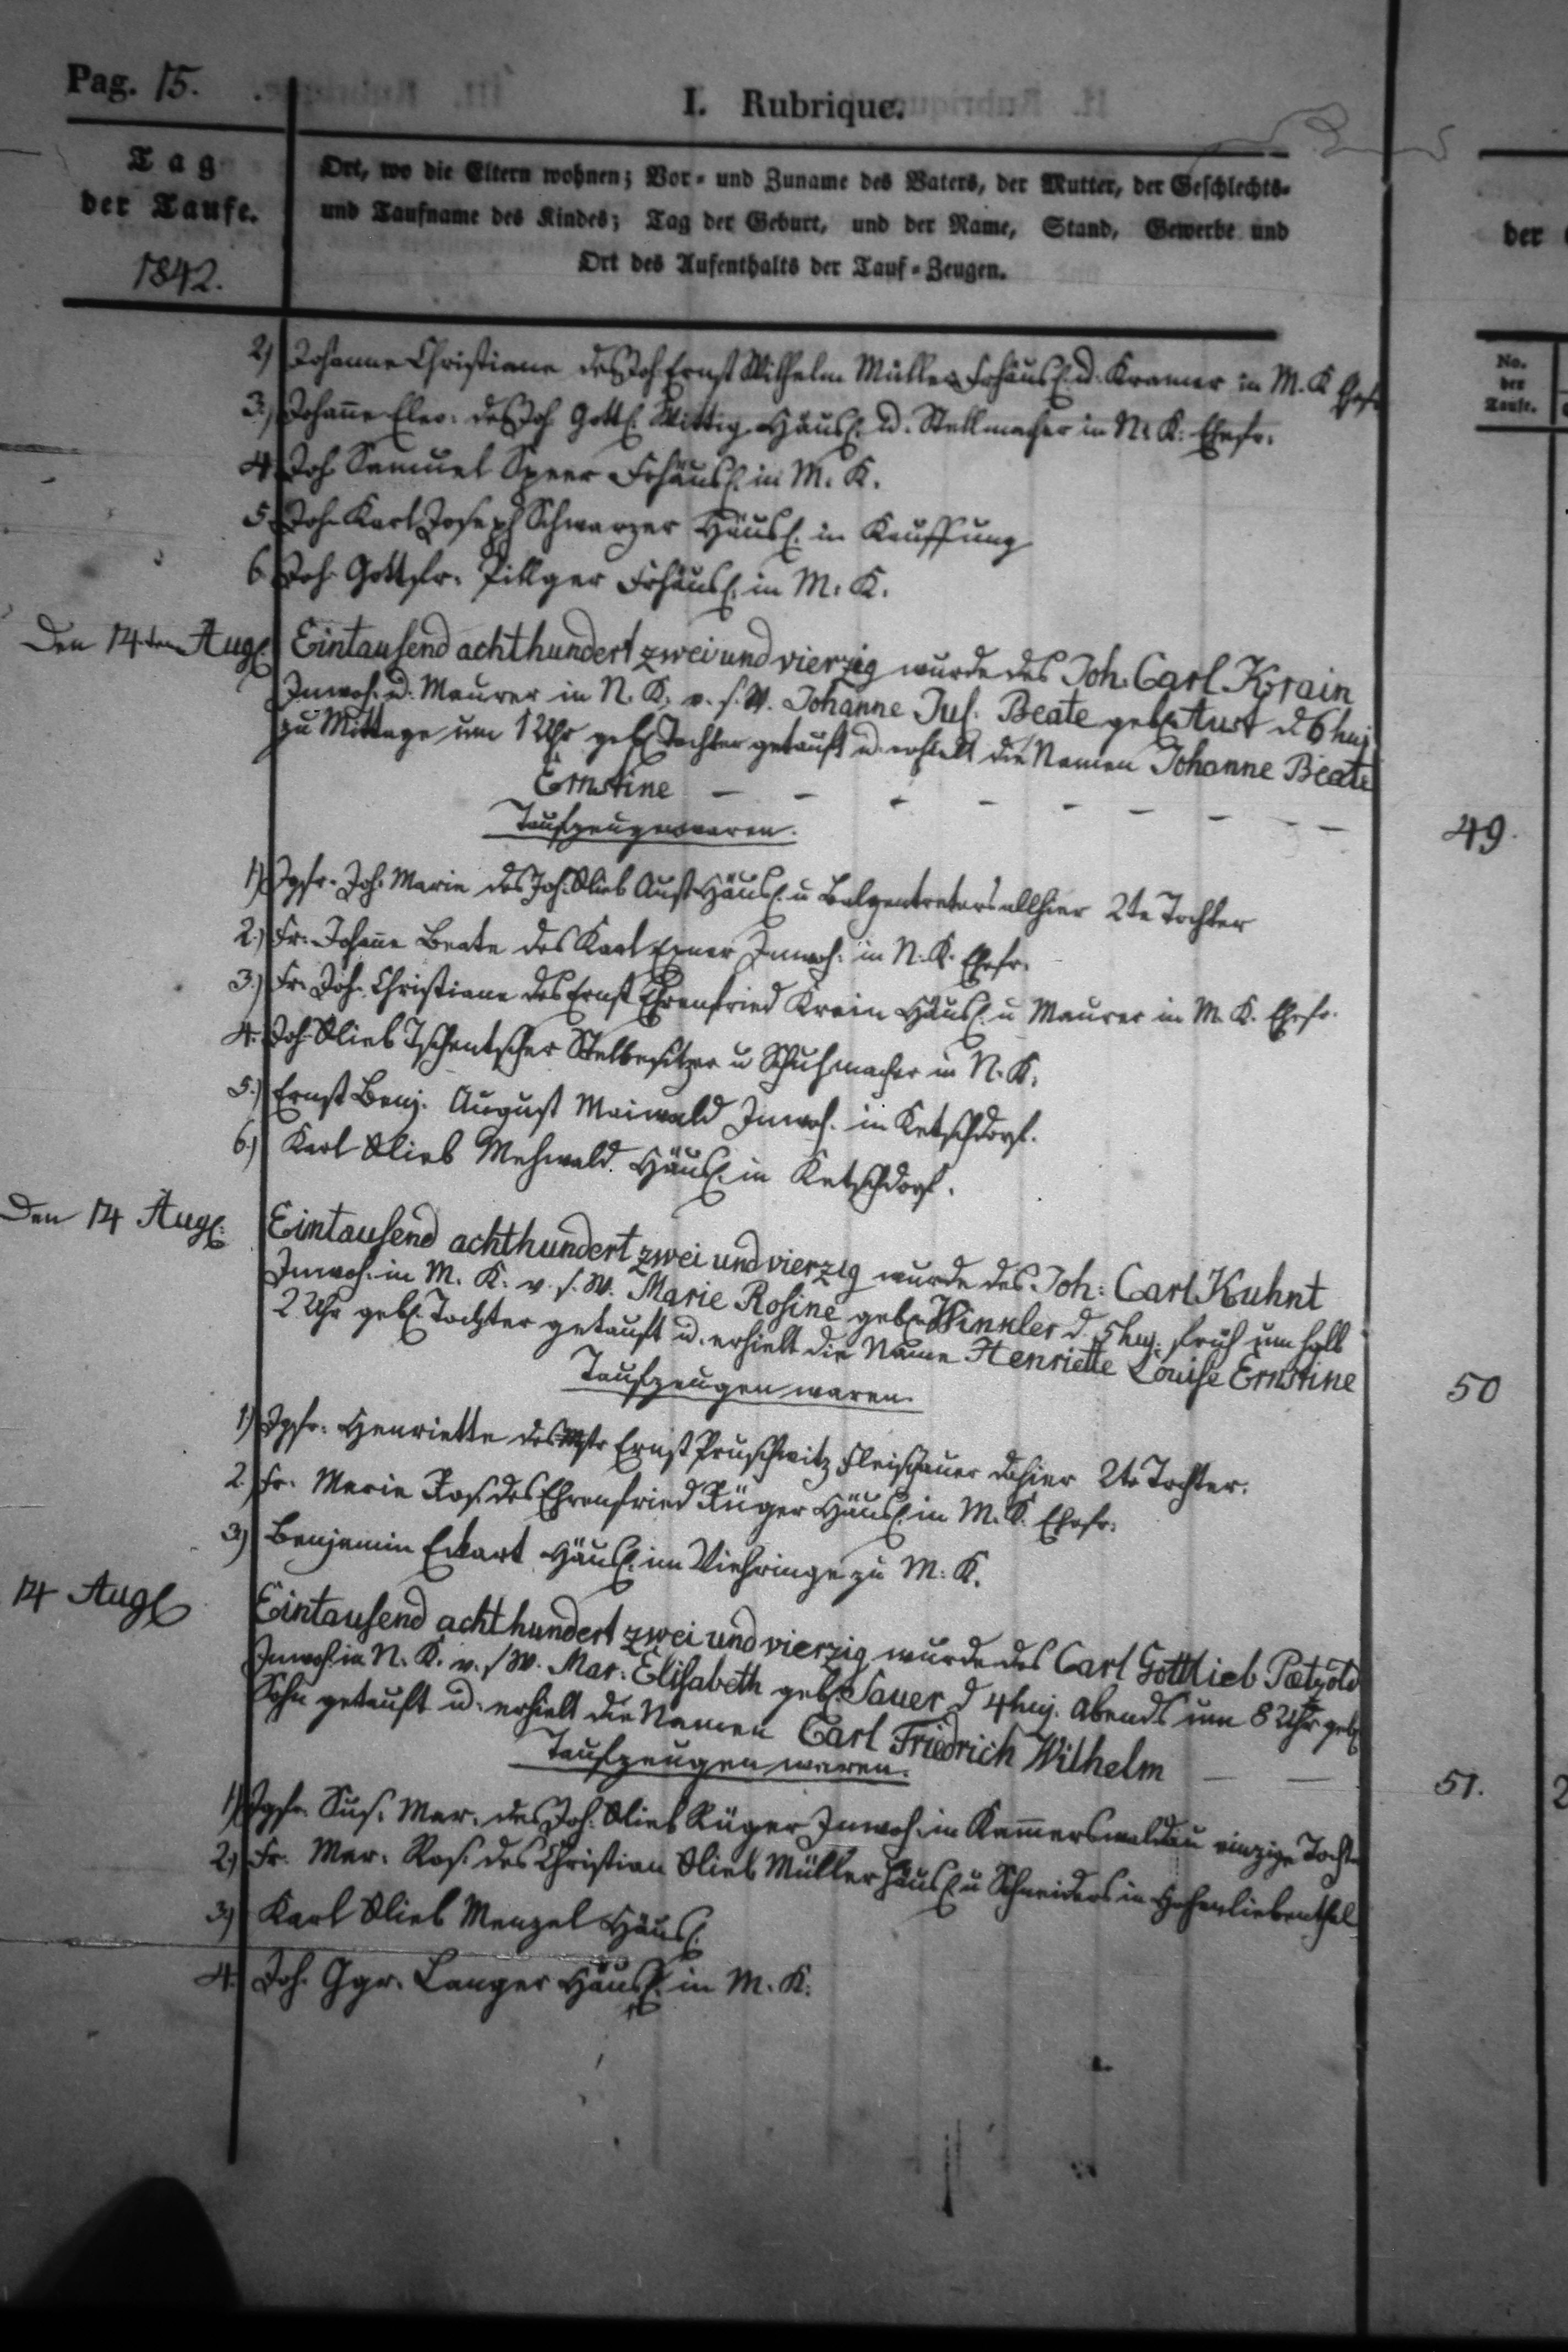 Pag. 15.
I. Rubrique.
Tag
der Taufe.
1842.
Ort, wo die Eltern wohnen; Vor- und Zuname des Vaters, der Mutter, der Geschlechts-
und Taufname des Kindes; Tag der Geburt, und der Name, Stand, Gewerbe und
Ort des Aufenthalts der Tauf-Zeugen.
der
No.
der
Taufe.
2) Johanne Christiane des Joh. Ernst Wilhelm Müller Frhäusl. u. Kramer in M. K. Ehefr.
3.) Johanne Eleo. des Joh. Gottl. Wittig Häusl. u. Stellmacher in N. K. Ehefr.
4 Joh Samuel Speer Frhäusl. in M. K.
5. Joh. Karl Joseph Schwarzer Häusl. in Kauffung
6 Joh. Gottfr. Pillger Frhäusl. in M. K.
Den 14ten Aug. Eintausend achthundert zwei und vierzig wurde des Joh. Carl Krain
Inwoh. u. Maurer in N. K. v. s. W. Johanne Jul. Beate geb. Aust d 6 huj.
zu Mittage um 1 Uhr geb. Tochter getauft u. erhielt die Namen Johanne Beate
Ernstine
49.
Taufzeugen waren.
1) Jgfr. Joh. Marie des Joh. Glieb Aust Häusl. u Balgentreters allhier 2te Tochter
2.) Fr. Johanne Beate des Karl Exner Inwoh. in N. K. Ehefr.
3.) Fr. Joh. Christiane des Ernst Ehrenfried Krain Häusl. u Maurer in M. K. Ehefr.
4. Joh. Glieb Tschentscher Stelbesitzer u Schuhmacher in N. K.
5.) Ernst Benj. August Maiwald Inwoh. in Ketschdorf.
6.) Karl Glieb Mehwald Häusl. in Ketschdorf.
Den 14 Aug. Eintausend achthundert zwei und vierzig wurde des Joh: Carl Kuhnt
Inwoh. in M. K. v. s. W. Marie Rosine geb. Winkler d. 5 huj. früh um halb
2 Uhr geb. Tochter getauft u. erhielt die Name Henriette Louise Ernstine
50
Taufzeugen waren.
1.) Jgfr. Henriette des Mstr Ernst Pruschwitz Fleischauer dahier 2te Tochter.
2.) Fr. Marie Ros. des Ehrenfried Rüger Häusl. in M. K. Ehefr.
3) Benjamin Eckart Häusl. im Viehringe zu M. K.
14 Aug. Eintausend achthundert zwei und vierzig wurde des Carl Gottlieb Pätzold
Inwoh. in N. K. v. s W. Mar. Elisabeth geb. Sauer d 4 huj. Abends um 8 Uhr geb.
Sohn getauft u. erhielt die Namen Carl Friedrich Wilhelm
51.
Taufzeugen waren.
1) Jgfr. Sus. Mar. des Joh. Glieb Rüger Inwoh. in Kammerswaldau einzige Tochter
2) Fr. Mar. Ros. des Christian Glieb Müller Häusl. u Schneiders in Hohenliebenthal
3) Karl Glieb Menzel Häusl.
4. Joh. Ggr. Langer Häusl. in M. K.